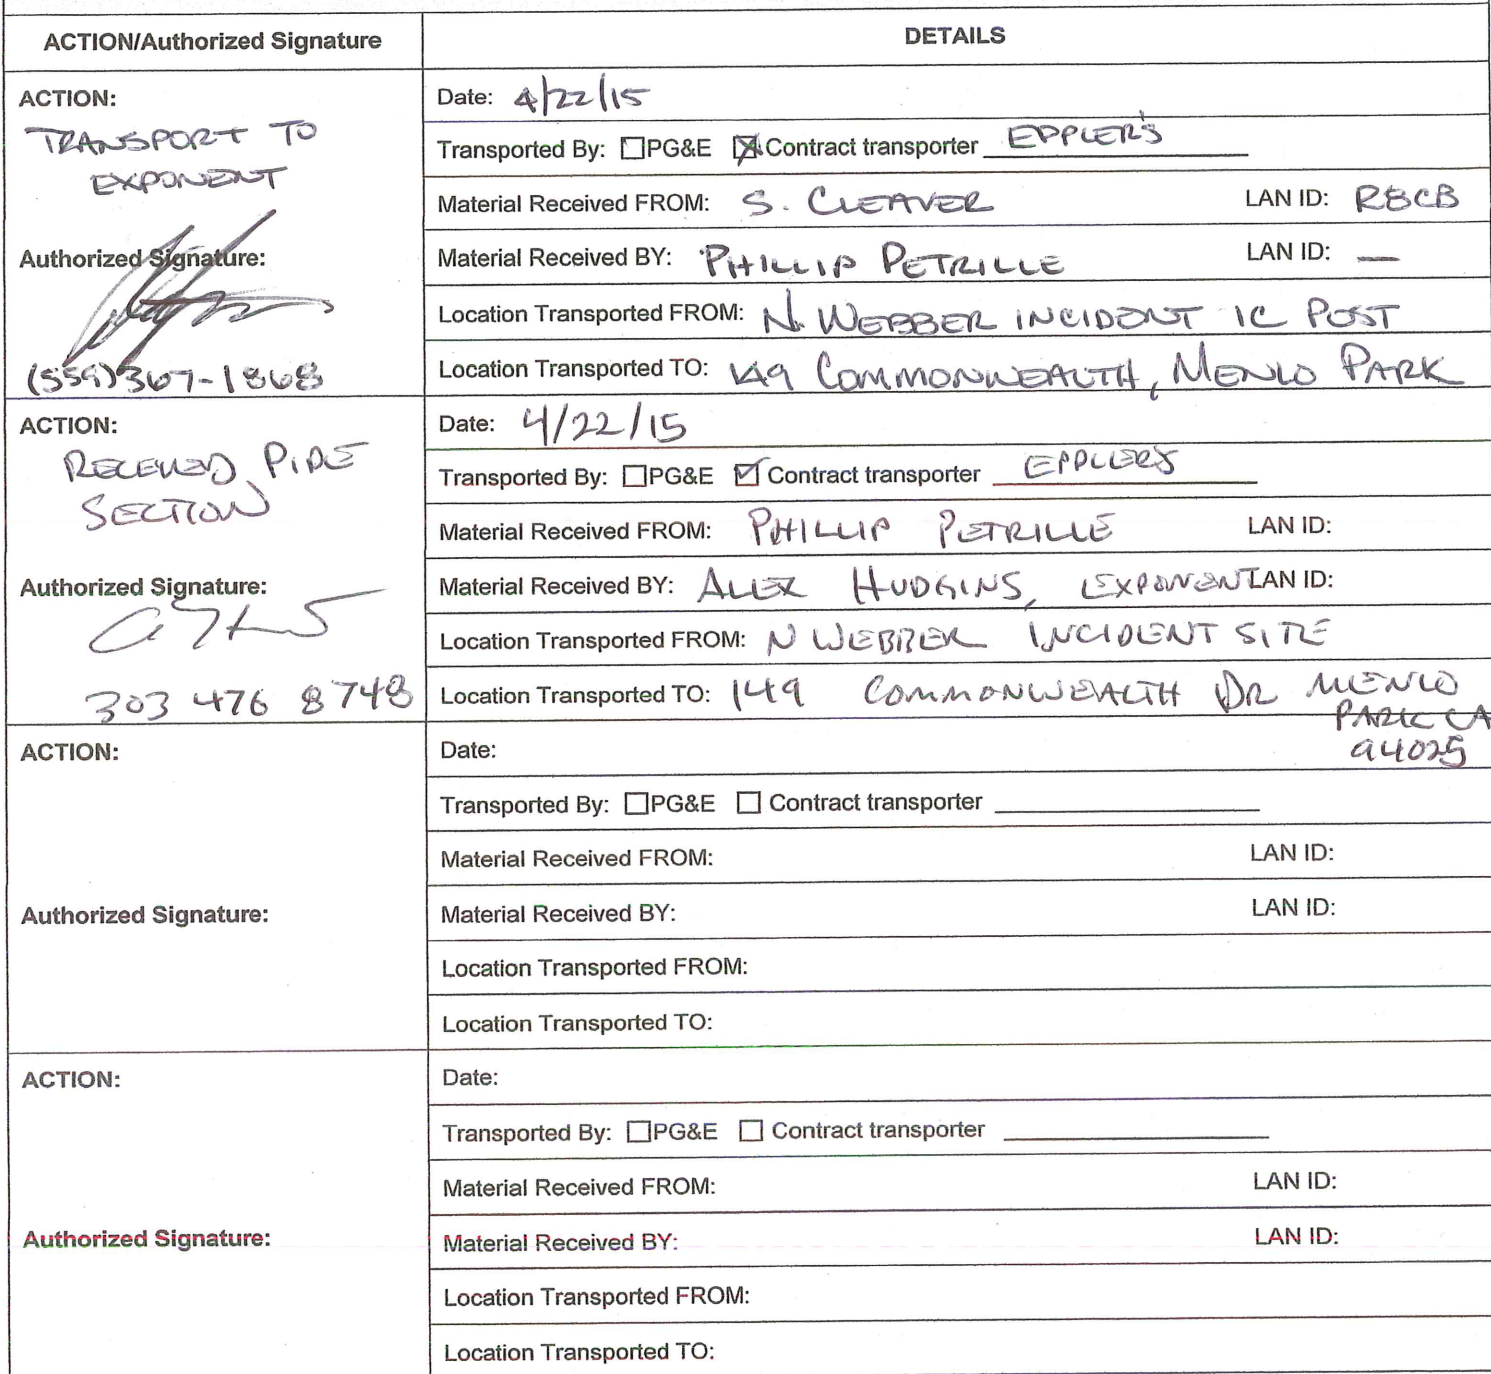 ACTION/Authorized Signature
DETAILS
ACTION:
TRANSPORT TO
EXPONENT
Authorized Signature:
(559)367-1868
Date: 4/22/15
Transported By: ☐PG&E ☒Contract transporter EPPLER'S
Material Received FROM: S. CLEAVER LAN ID: R8CB
Material Received BY: PHILLIP PETRILLE LAN ID: —
Location Transported FROM: N. WEBBER INCIDENT IC POST
Location Transported TO: 149 COMMONWEALTH, MENLO PARK
ACTION:
RECEIVED PIPE
SECTION
Authorized Signature:
303 476 8748
Date: 4/22/15
Transported By: ☐PG&E ☑ Contract transporter EPPLERS
Material Received FROM: PHILLIP PETRILLE LAN ID:
Material Received BY: ALEX HUDGINS, EXPONENT LAN ID:
Location Transported FROM: N WEBBER INCIDENT SITE
Location Transported TO: 149 COMMONWEALTH DR MENLO
PARK CA
94025
ACTION:
Authorized Signature:
Date:
Transported By: ☐PG&E ☐ Contract transporter
Material Received FROM: LAN ID:
Material Received BY: LAN ID:
Location Transported FROM:
Location Transported TO:
ACTION:
Authorized Signature:
Date:
Transported By: ☐PG&E ☐ Contract transporter
Material Received FROM: LAN ID:
Material Received BY: LAN ID:
Location Transported FROM:
Location Transported TO: